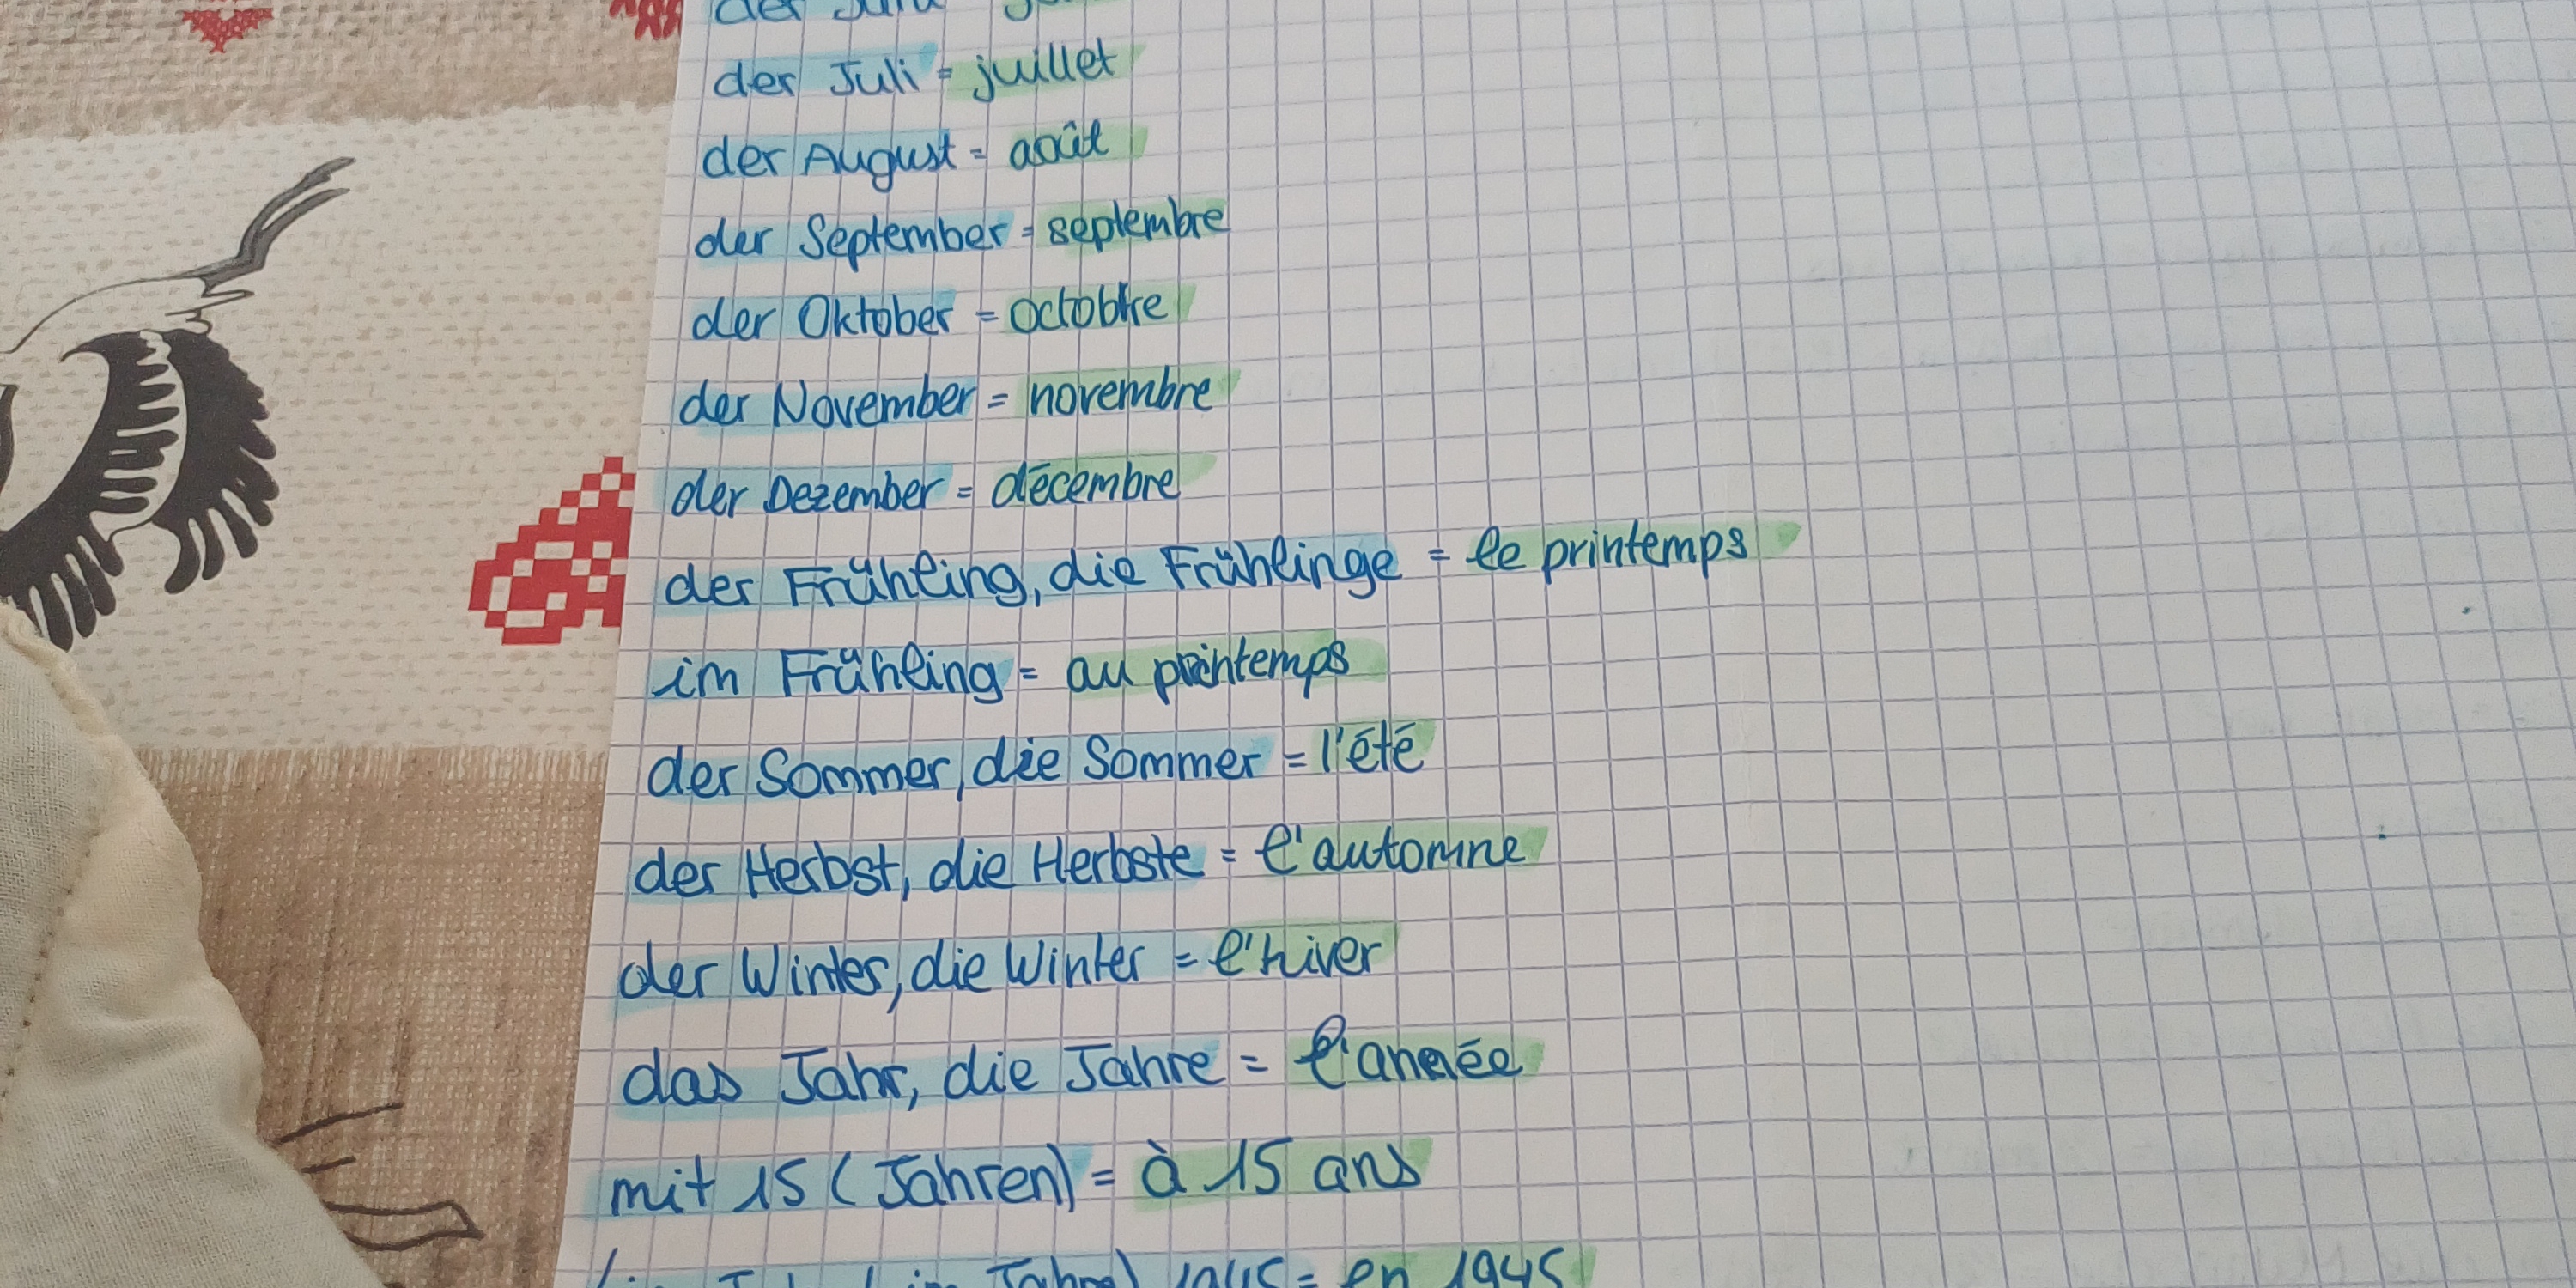 der Juni
der Juli = juillet
der August = août
der September = septembre
der Oktober = octobre
der November = novembre
der Dezember = décembre
der Frühling, die Frühlinge = le printemps
im Frühling = au printemps
der Sommer, die Sommer = l'été
der Herbst, die Herbste = l'automne
der Winter, die Winter = l'hiver
das Jahr, die Jahre = l'année
mit 15 (Jahren) = à 15 ans
1945 = en 1945